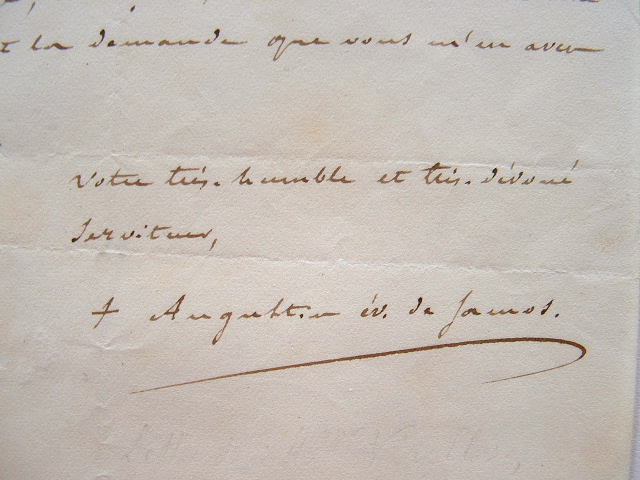 t la demande que vous m'en avez
Votre très-humble et très-dévoué
Serviteur,
+ Augustin év. de Samos.